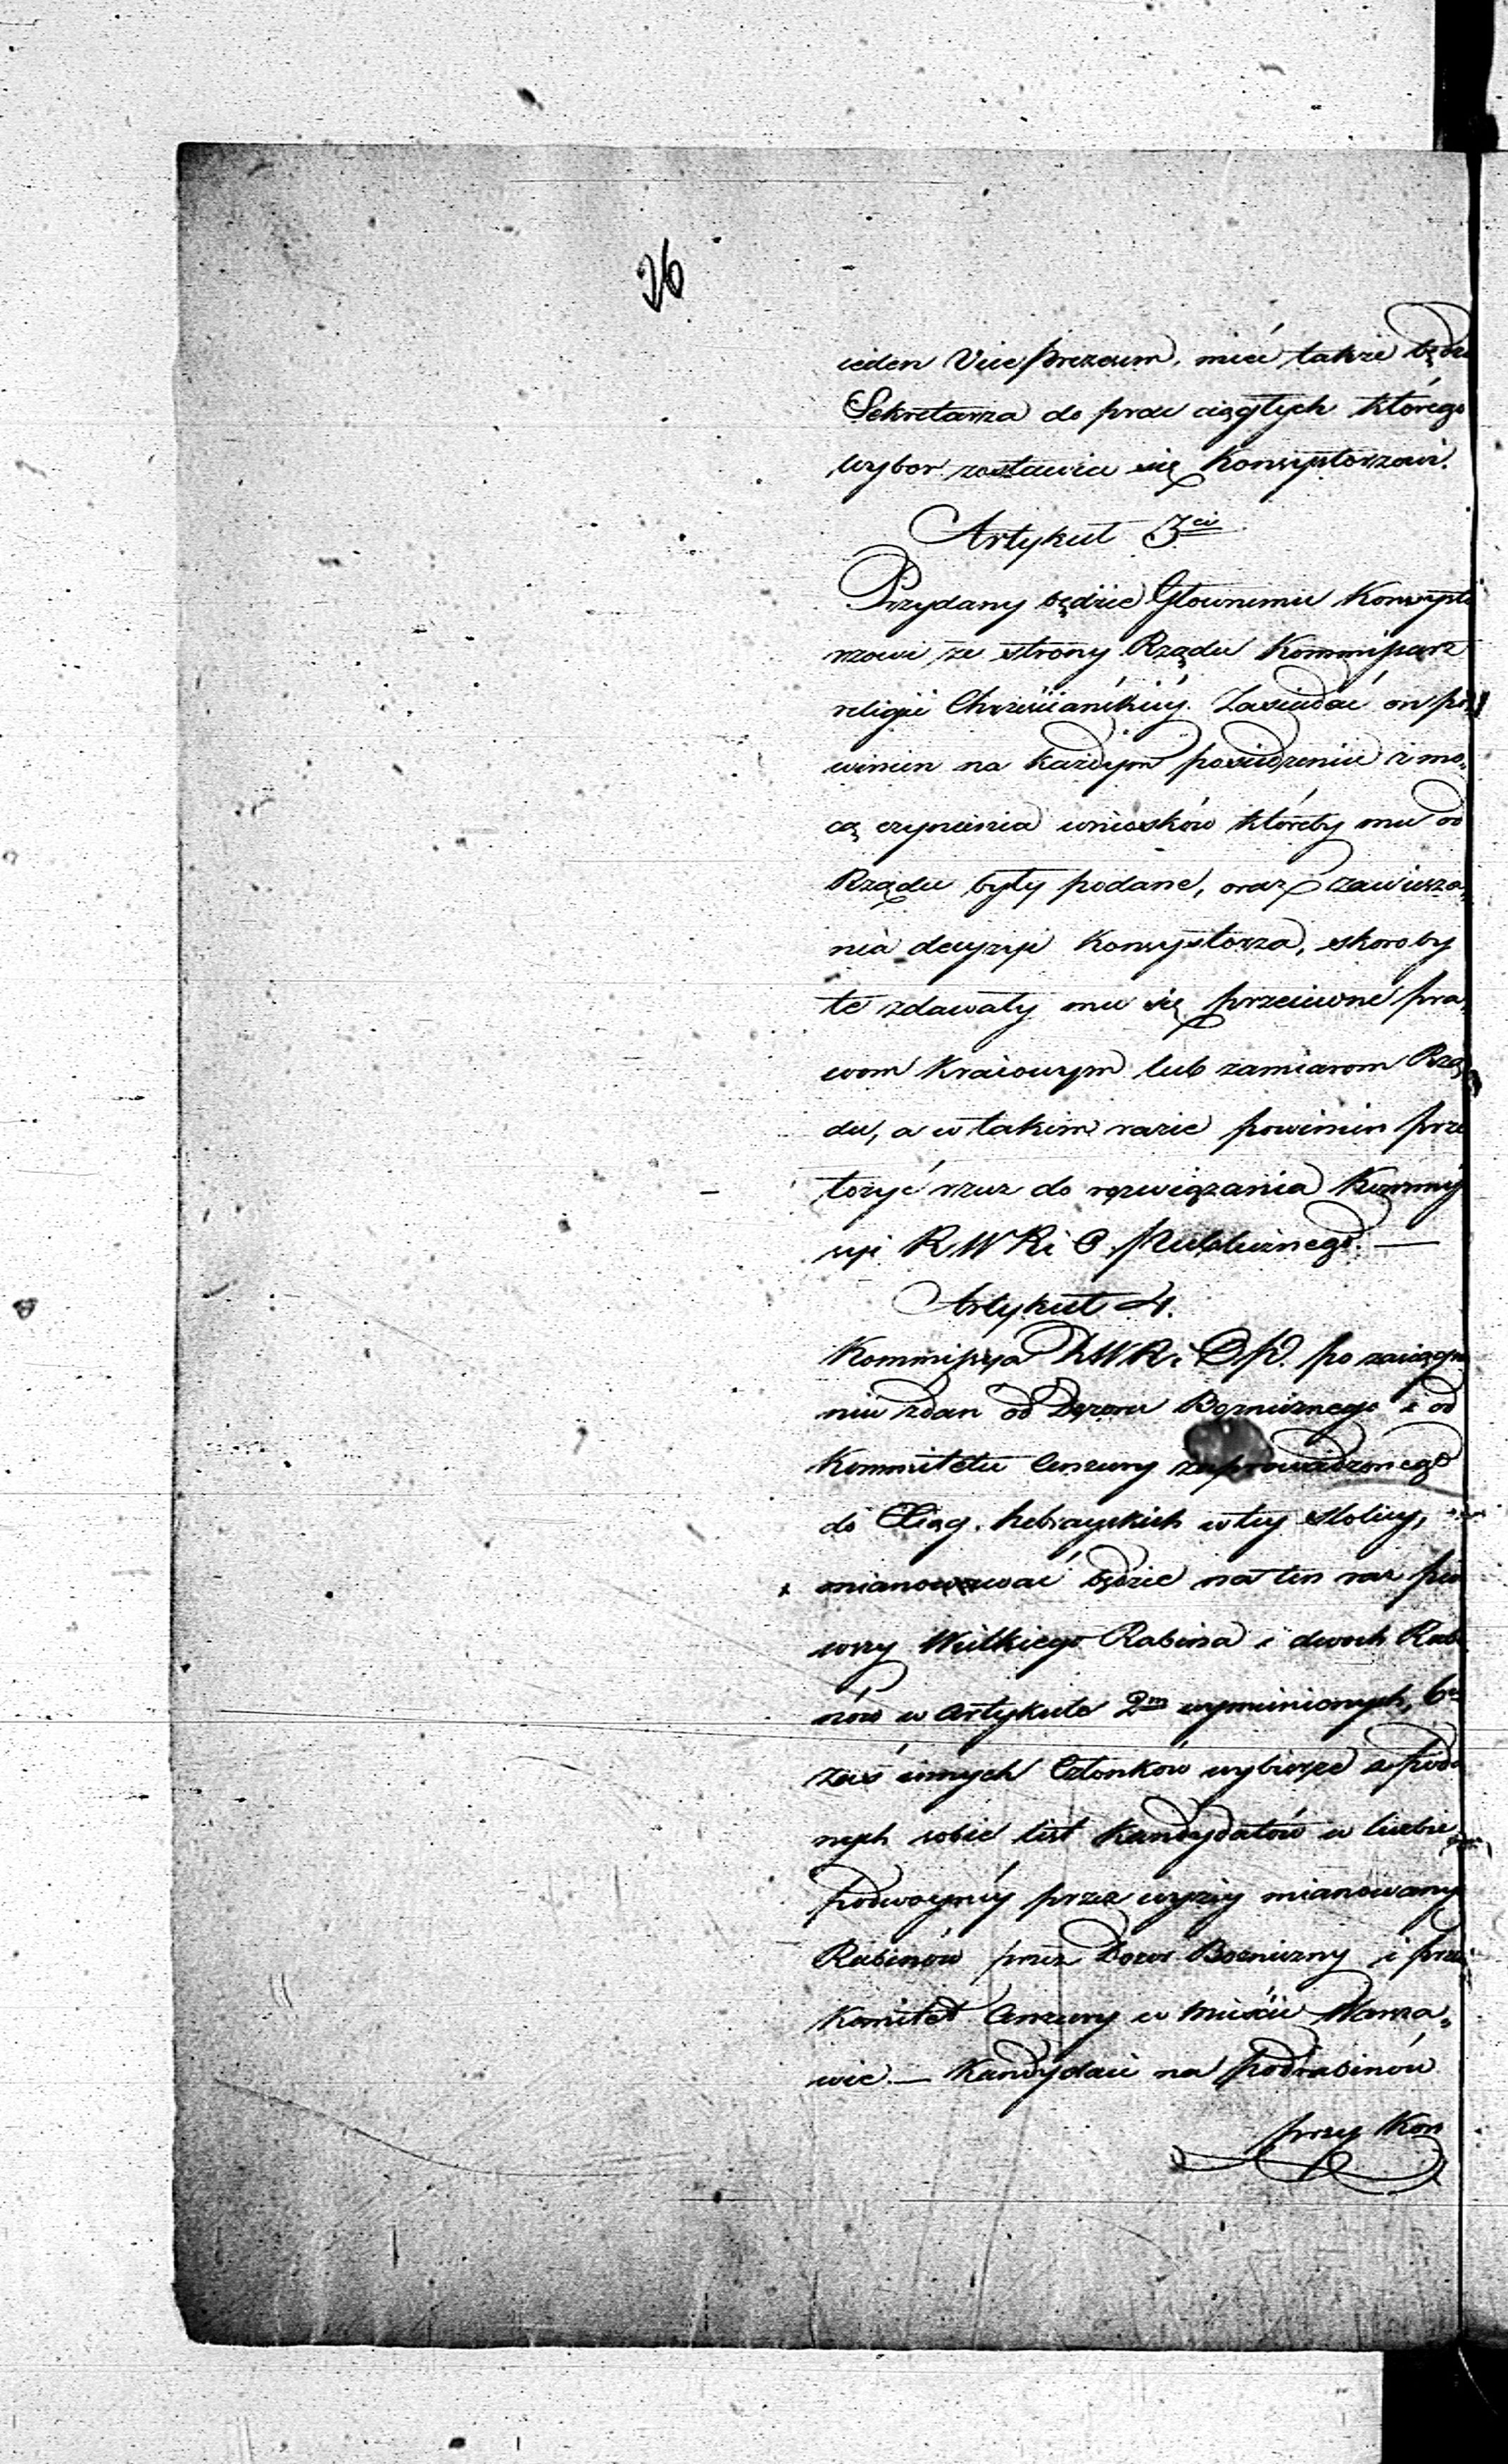 26
ieden Vice Prezesem, mieć także będzie
Sekretarza do prac ciągłych którego
wybor zostawia się Konsystorzowi.
Artykuł 3ci
Przydany będzie Głownemu Konsysto
rzowi ze strony Rządu Kommissarz
religii Chrześcianskiéy. Zasiadać on po
winien na każdym posiedzeniu z mo„
cą czynienia wniosków któreby mu od
Rządu były podane, oraz zawiesza„
nia decyzyi Konsystorza, skoroby
te zdawały mu się przeciwne pra„
wom Kraiowym lub zamiarom Rzą
du, a w takim razie powinien prze
łożyć rzecz do rozwiązania Kommis
syi R W R i O. Publicznego. —
Artykuł 4.
Kommissya RWR i O P. po zaciągnie
niu zdań od Dozoru Bożniczego i od
Kommitetu Cenzury zaprowadzonego
do Xiąg hebrayskich w tey stolicy,
mianować będzie na ten raz pier
wszy Wielkiego Rabina i dwoch Rabi
nów w Artykule 2m wymienionych, 6u
zaś innych Członków wybierze z poda
nych sobie list Kandydatów w liczbie
podwoynéy przez wyżéy mianowanych
Rabinów przez Dozor Bożniczny i przez
Komitet Cenzury w Mieście Warsza„
wie. — Kandydaci na Podrabinów
przy Kon